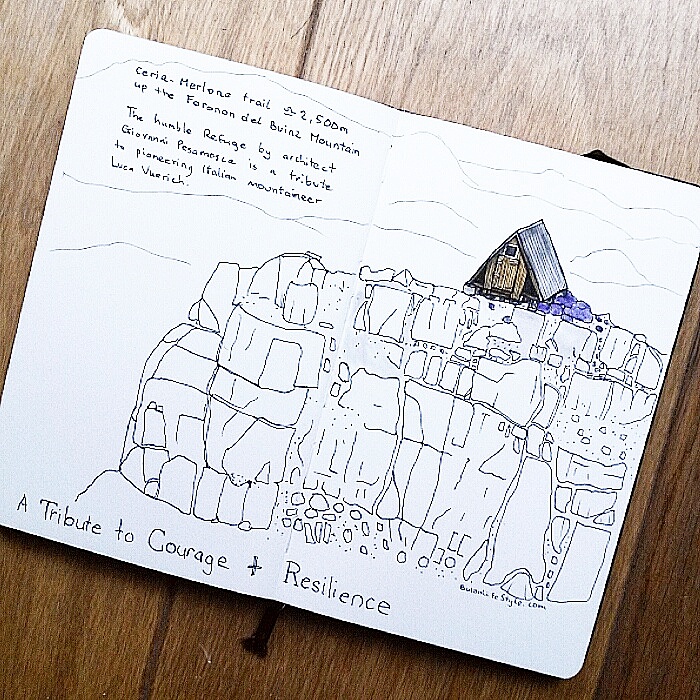 Ceria-Merlone trail ≏ 2,500m
up the Foronon del Buinz Mountain
The humble Refuge by architect
Giovanni Pesamosca is a tribute
to pioneering Italian mountaineer
Luca Vuerich.
A Tribute to Courage + Resilience